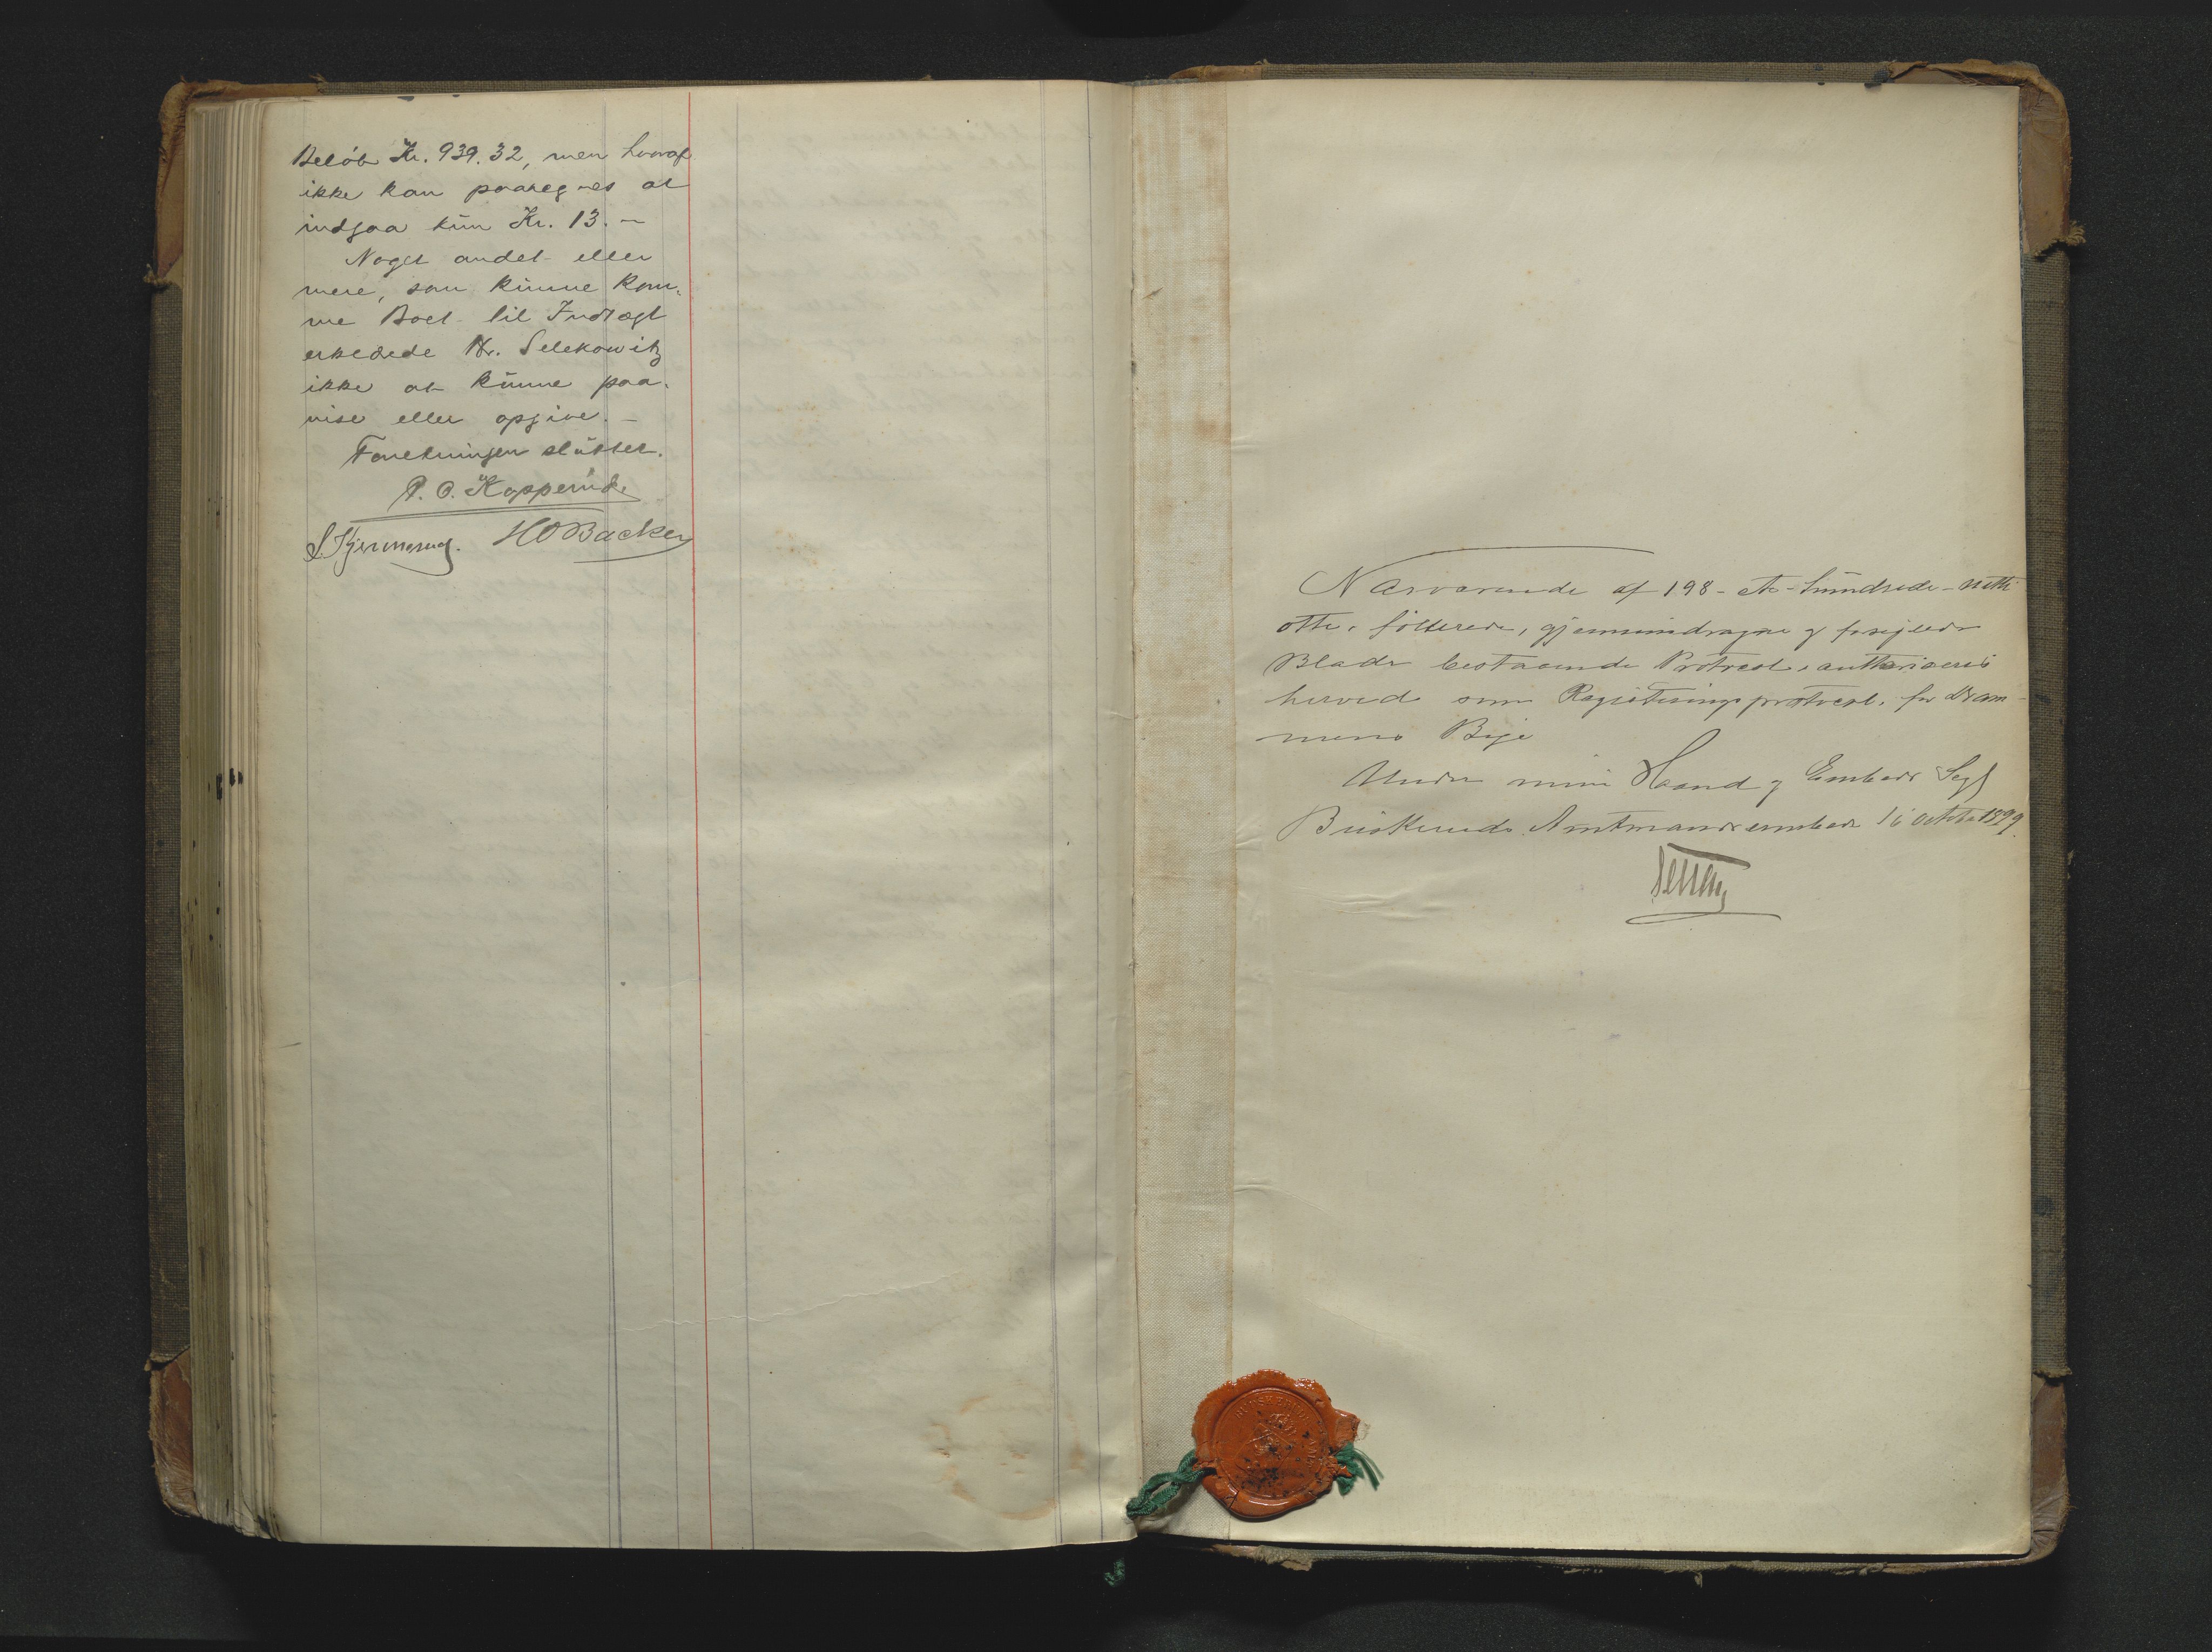 Beløb Kr. 939.32, men hvoraf
ikke kan paaregnes at
indgaa kun Kr. 13. –
Noget andet eller
mere, som kunne kom-
me Boet til Indtægt
erklærede Hr. Selekowitz
ikke at kunne paa-
vise eller opgive. –
Forretningen sluttet.
P. O. Kopperud.
HOBacker
Nærværende af 198 – et – hundrede – nitti
otte, follierede, gjennemdragne og forseglede
Blade bestaaende Protocol, auttoriseres
herved som Registreringsprotocol for Dram-
mens Bye
Under min Haand og Embeds Segl
Buskeruds Amtmandsembede 16 octobr 1899.
BUSKERUDS AMT